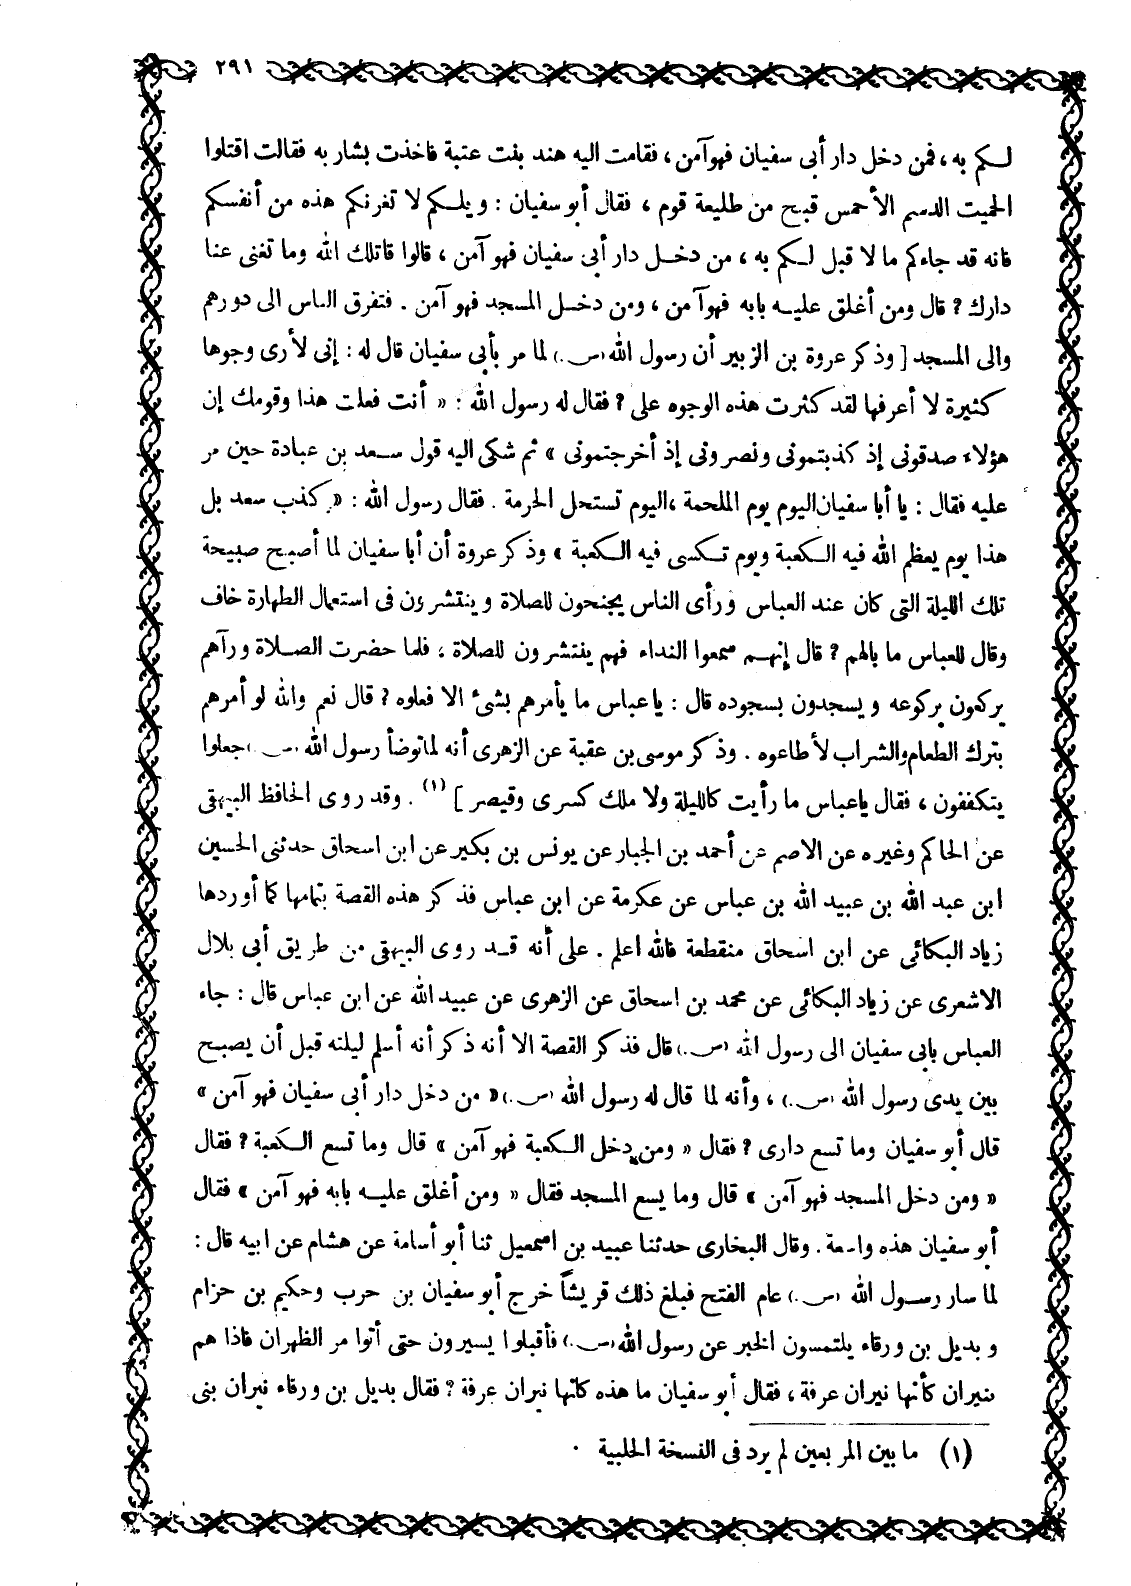 ٢٩١
لكم به ، فمن دخل دار أبى سفيان فهو آمن ، فقامت اليه هند بنت عتبة فاخذت بشار به فقالت اقتلوا
الحميت الدسم الأحمس قبح من طليعة قوم ، فقال أبو سفيان : ويلكم لا تغرنكم هذه من أنفسكم
فانه قد جاءكم ما لا قبل لكم به ، من دخل دار أبى سفيان فهو آمن ، قالوا قاتلك الله وما تغنى عنا
دارك ? قال ومن أغلق عليه بابه فهو آمن ، ومن دخل المسجد فهو آمن . فتفرق الناس الى دورهم
والى المسجد [ وذكر عروة بن الزبير أن رسول الله (ص.) لما مر بأبى سفيان قال له : إنى لأرى وجوها
كثيرة لا أعرفها لقد كثرت هذه الوجوه على ? فقال له رسول الله : « أنت فعلت هذا وقومك إن
هؤلاء صدقونى إذ كذبتمونى ونصرونى إذ أخرجتمونى » ثم شكى اليه قول سعد بن عبادة حين مر
عليه فقال : يا أبا سفيان اليوم يوم الملحمة ، اليوم تستحل الحرمة . فقال رسول الله : « كذب سعد بل
هذا يوم يعظم الله فيه الكعبة ويوم تكسى فيه الكعبة » وذكر عروة أن أبا سفيان لما أصبح صبيحة
تلك الليلة التى كان عند العباس ورأى الناس يجنحون للصلاة وينتشرون فى استعمال الطهارة خاف
وقال للعباس ما بالهم ? قال إنهم سمعوا النداء فهم ينتشرون للصلاة ، فلما حضرت الصلاة ورآهم
يركعون بركوعه ويسجدون بسجوده قال : يا عباس ما يأمرهم بشئ الا فعلوه ? قال نعم والله لو أمرهم
بترك الطعام والشراب لأطاعوه . وذكر موسى بن عقبة عن الزهرى أنه لما توضأ رسول الله (ص.) جعلوا
يتكففون ، فقال يا عباس ما رأيت كالليلة ولا ملك كسرى وقيصر ] (١) . وقد روى الحافظ البيهقى
عن الحاكم وغيره عن الاصم عن أحمد بن الجبار عن يونس بن بكير عن ابن اسحاق حدثنى الحسين
ابن عبد الله بن عبيد الله بن عباس عن عكرمة عن ابن عباس فذكر هذه القصة بتمامها كما أوردها
زياد البكائى عن ابن اسحاق منقطعة فالله اعلم . على أنه قد روى البيهقى من طريق أبى بلال
الاشعرى عن زياد البكائى عن محمد بن اسحاق عن الزهرى عن عبيد الله عن ابن عباس قال : جاء
العباس بابى سفيان الى رسول الله (ص.) قال فذكر القصة الا أنه ذكر أنه أسلم ليلته قبل أن يصبح
بين يدى رسول الله (ص.) ، وأنه لما قال له رسول الله (ص.) « من دخل دار أبى سفيان فهو آمن »
قال أبو سفيان وما تسع دارى ? فقال « ومن دخل الكعبة فهو آمن » قال وما تسع الكعبة ? فقال
« ومن دخل المسجد فهو آمن » قال وما يسع المسجد فقال « ومن أغلق عليه بابه فهو آمن » فقال
أبو سفيان هذه واسعة . وقال البخارى حدثنا عبيد بن اسمعيل ثنا أبو أسامة عن هشام عن ابيه قال :
لما سار رسول الله (ص.) عام الفتح فبلغ ذلك قريشاً خرج أبو سفيان بن حرب وحكيم بن حزام
وبديل بن ورقاء يلتمسون الخبر عن رسول الله (ص.) فأقبلوا يسيرون حتى أتوا مر الظهران فاذا هم
بنيران كأنها نيران عرفة ، فقال أبو سفيان ما هذه كانها نيران عرفة ? فقال بديل بن ورقاء نيران بنى
(١) ما بين المربعين لم يرد فى النسخة الحلبية .